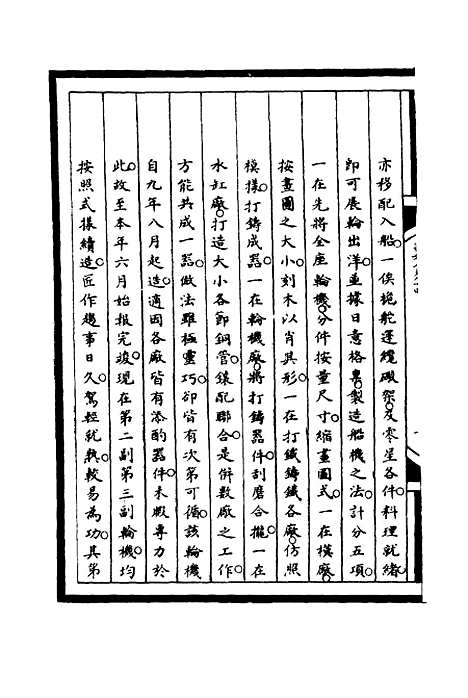 亦移配入船。一俟拖舵運纜礮架。及零星各件料理就緒。
即可展輪出洋。並據日意格稟製造船機之法。計分五項。
一在先將全座輪機。分件按量尺寸。縮畫圖式。一在模廠。
按畫圖之大小。刻木以肖其形。一在打鐵鑄鐵各廠。仿照
模樣。打鑄成器。一在輪機廠。將打鑄器件。刮磨合攏。一在
水缸廠。打造大小各節銅管。鑲配聯合。是併數廠之工作。
方能共成一器。做法雖極靈巧。卻皆有次第可循。該輪機
自九年八月起造。適因各廠皆有添酌器件。未暇專力於
此。故至本年六月始報完竣。現在第二副第三副輪機。均
按照式樣續造。匠作趨事日久。駕輕就熟。較易為功。其第